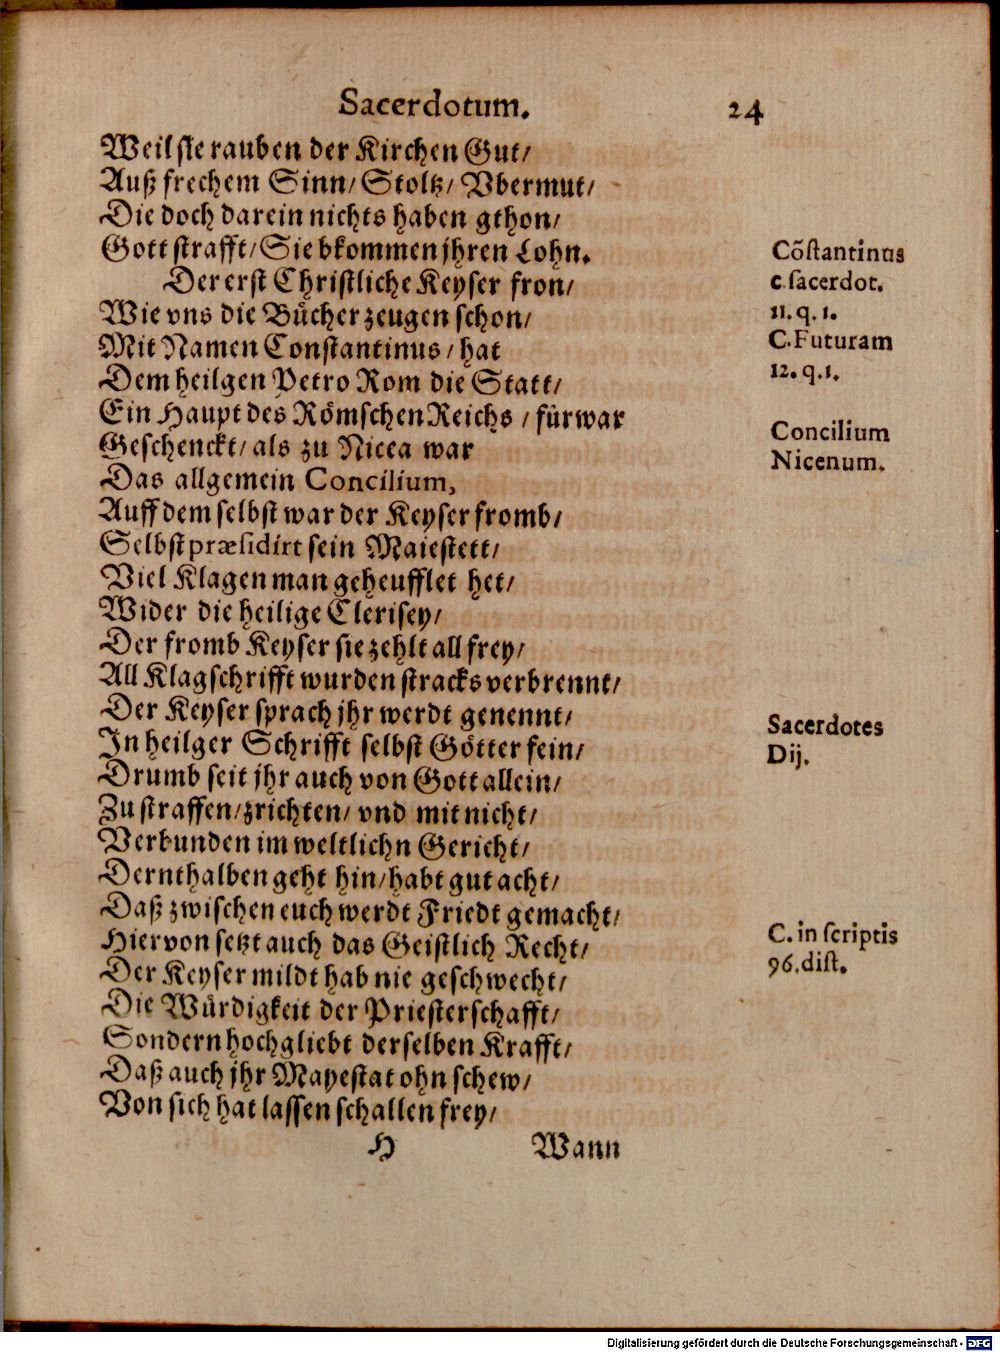 Sacerdotum. 24
Weil sie rauben der Kirchen Gut/
Auß frechem Sinn/ Stoltz/ Vbermut/
Die doch darein nichts haben gthon/
Gott strafft/ Sie bkommen jhren Lohn.
Der erst Christliche Keyser fron/
Wie vns die Bücher zeugen schon/
Mit Namen Constantinus/ hat
Dem heilgen Petro Rom die Statt/
Ein Haupt des Römschen Reichs / fürwar
Geschenckt/ als zu Nicea war
Das allgemein Concilium,
Auff dem selbst war der Keyser fromb/
Selbst præsidirt sein Maiestett/
Viel Klagen man geheufflet het/
Wider die heilige Clerisey/
Der fromb Keyser sie zehlt all frey/
All Klagschrifft wurden stracks verbrennt/
Der Keyser sprach jhr werdt genennt/
In heilger Schrifft selbst Götter fein/
Drumb seit jhr auch von Gott allein/
Zu straffen/ zrichten/ vnd mit nicht/
Verbunden im weltlichn Gericht/
Dernthalben geht hin/ habt gut acht/
Daß zwischen euch werdt Friedt gemacht/
Hiervon setzt auch das Geistlich Recht/
Der Keyser mildt hab nie geschwecht/
Die Würdigkeit der Priesterschafft/
Sondern hochgliebt derselben Krafft/
Daß auch jhr Mayestat ohn schew/
Von sich hat lassen schallen frey/
H Wann
Cõstantinus
c sacerdot.
11. q. 1.
C. Futuram
12. q. 1.
Concilium
Nicenum.
Sacerdotes
Dij.
C. in scriptis
96. dist.
Digitalisierung gefördert durch die Deutsche Forschungsgemeinschaft - DFG